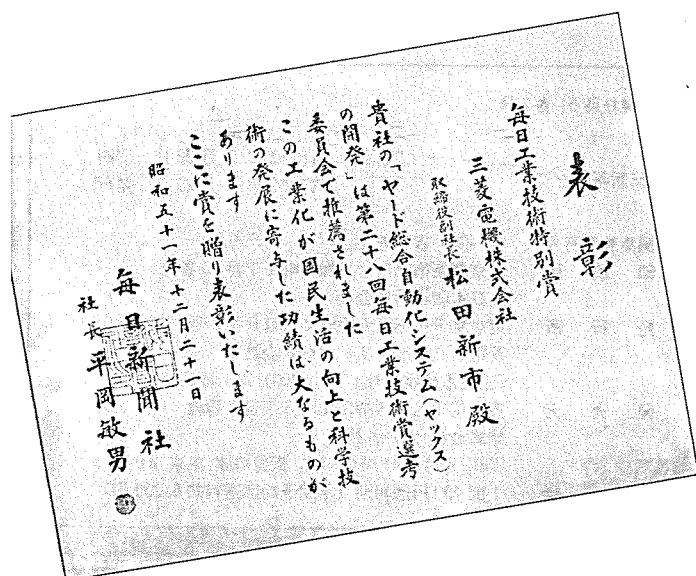 表彰
毎日工業技術特別賞
三菱電機株式会社
取締役副社長 松田新市殿
貴社の「ヤード総合自動化システム(ヤックス)
の開発」は第二十八回毎日工業技術賞選考
委員会で推薦されました
この工業化が国民生活の向上と科学技
術の発展に寄与した功績は大なるものが
あります
ここに賞を贈り表彰いたします
昭和五十一年十二月二十一日
毎日新聞社
社長 平岡敏男